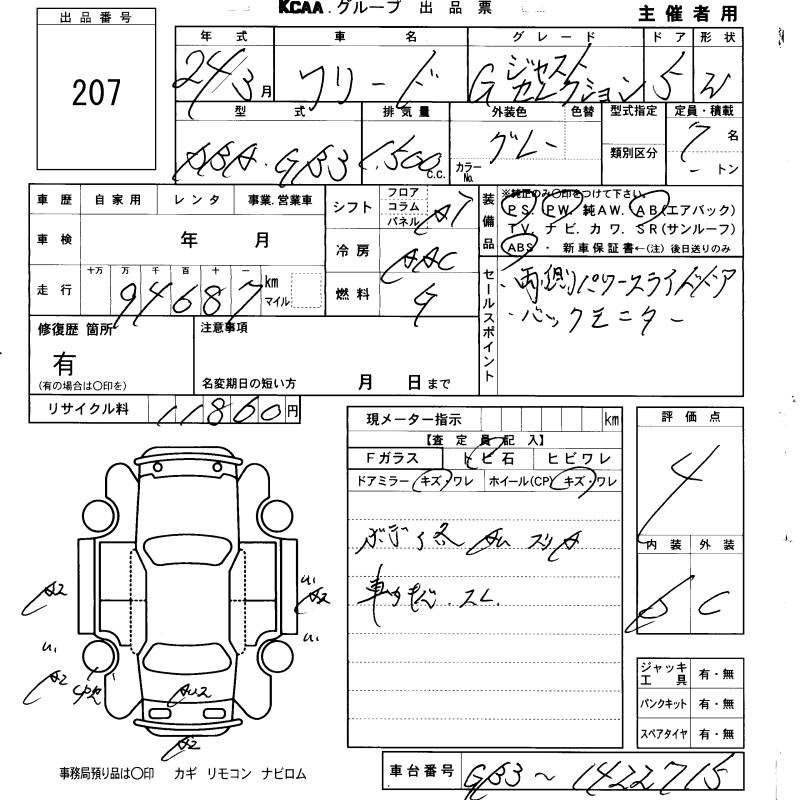 KCAA.グループ 出品票
主催者用
出品番号
207
年式 車名 グレード ドア 形状
24/3月 フリード Gジャストセレクション 5 W
型式 排気量 外装色 色替 型式指定 定員・積載
DBA.GB3 1,500 c.c. グレー カラーNo. 類別区分 7名
-トン
車歴 自家用 レンタ 事業.営業車
シフト フロア コラム パネル AT
車検 年 月
冷房 AAC
走行 十万 万 千 百 十 一
94687 km マイル
燃料 G
装備品 ※純正のみ○印をつけて下さい。
PS. PW. 純AW. AB(エアバック)
TV. ナビ. カワ. SR(サンルーフ)
ABS ・ 新車保証書←(注) 後日送りのみ
セールスポイント
・両側パワースライドドア
・バックモニター
修復歴 箇所
有
(有の場合は○印を)
注意事項
名変期日の短い方 月 日まで
リサイクル料 11860円
現メーター指示 km
【査定員記入】
Fガラス トビ石 ヒビワレ
ドアミラー キズ・ワレ ホイール(CP) キズ・ワレ
ボディ各 AU スリA
車内 スレ.
評価点
4
内装 外装
C
A2
A2
A2
AU2
A2
ジャッキ工具 有・無
パンクキット 有・無
スペアタイヤ 有・無
事務局預り品は○印 カギ リモコン ナビロム
車台番号 GB3～1422715